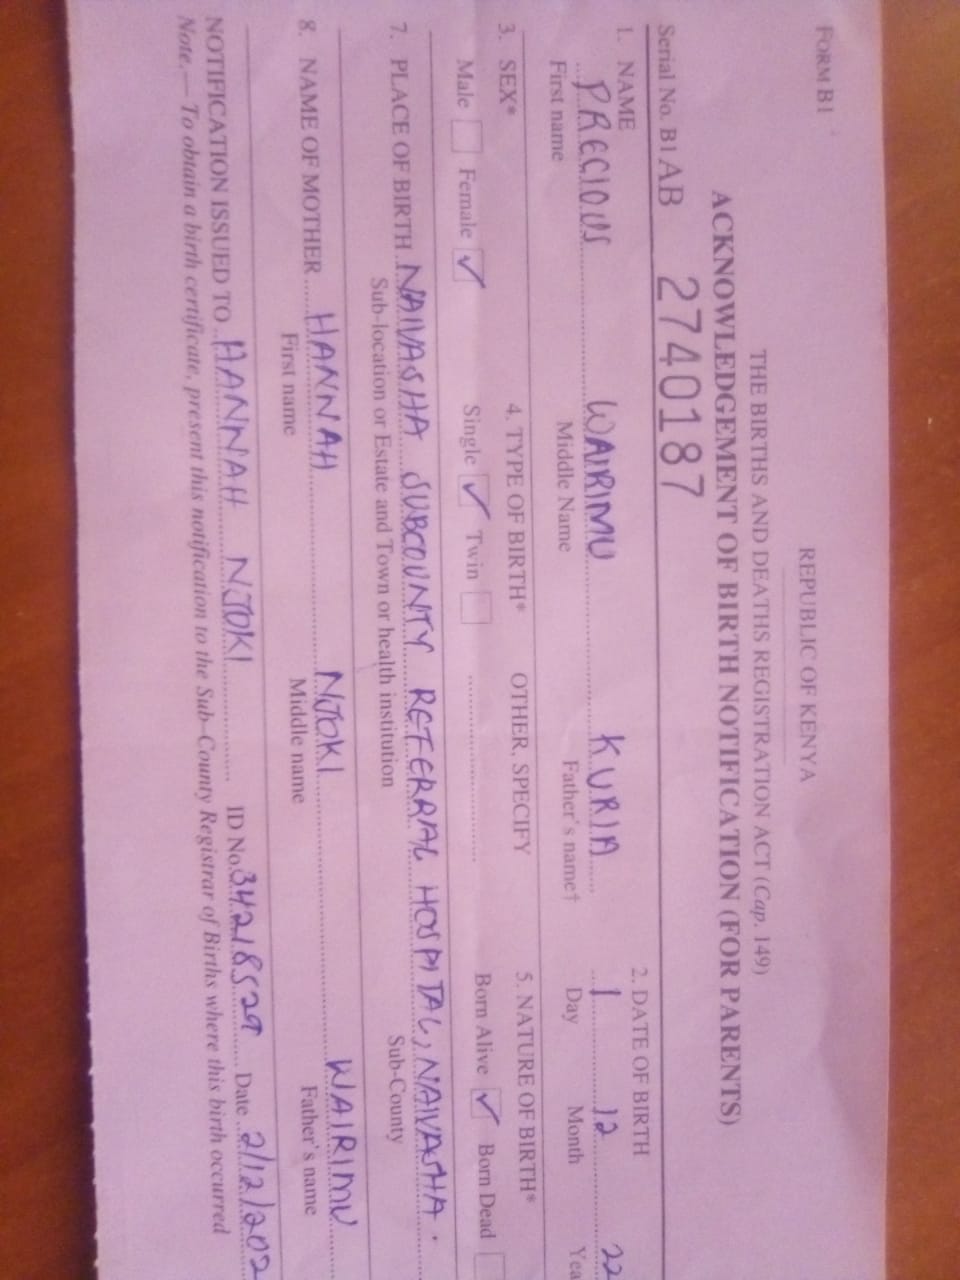 FORM B1
REPUBLIC OF KENYA
THE BIRTHS AND DEATHS REGISTRATION ACT (Cap. 149)
ACKNOWLEDGEMENT OF BIRTH NOTIFICATION (FOR PARENTS)
Serial No. B1 AB 2740187
1. NAME 2. DATE OF BIRTH
PRECIOUS WAIRIMU KURIA 1 12 22
First name Middle Name Father's name† Day Month
3. SEX* 4. TYPE OF BIRTH* OTHER, SPECIFY 5. NATURE OF BIRTH*
Male Female ✓ Single ✓ Twin Born Alive ✓ Born Dead
7. PLACE OF BIRTH NAIVASHA SUBCOUNTY REFERRAL HOSPITAL, NAIVASHA.
Sub-location or Estate and Town or health institution Sub-County
8. NAME OF MOTHER HANNAH NJOKI WAIRIMU
First name Middle name Father's name
NOTIFICATION ISSUED TO HANNAH NJOKI ID No. 34218529 Date 2/12/202
Note.—To obtain a birth certificate, present this notification to the Sub-County Registrar of Births where this birth occurred